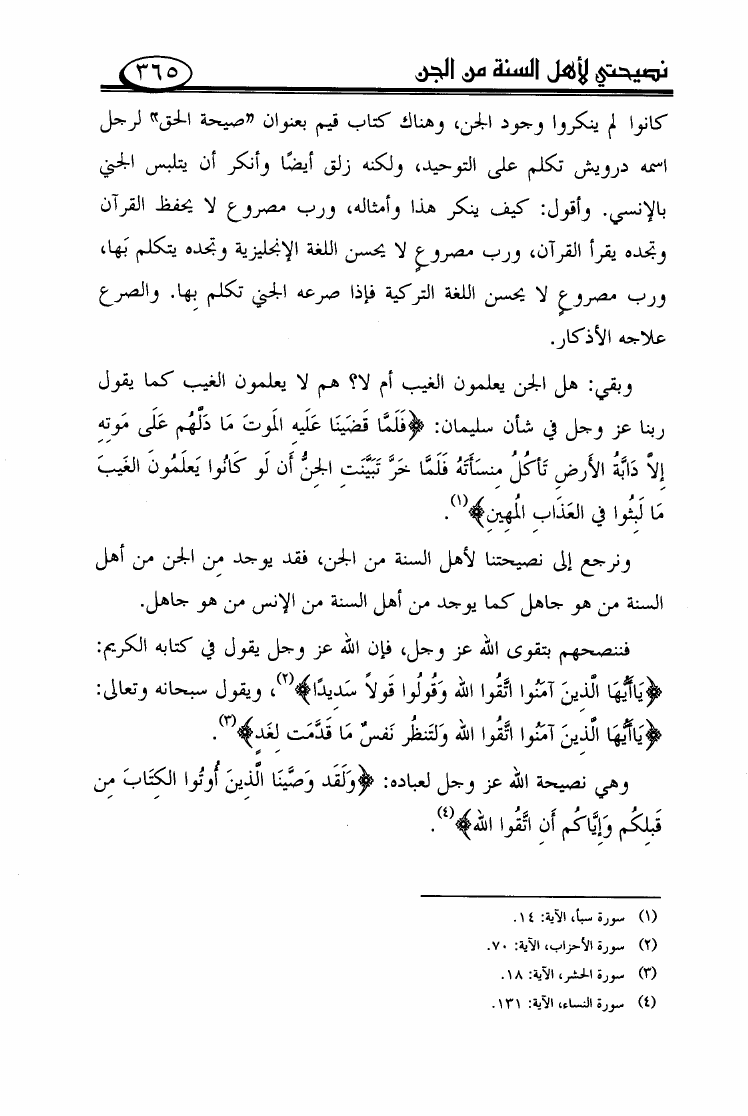 نصيحتي لأهل السنة من الجن
٣٦٥
كانوا لم ينكروا وجود الجن، وهناك كتاب قيم بعنوان "صيحة الحق" لرجل
اسمه درويش تكلم على التوحيد، ولكنه زلق أيضًا وأنكر أن يتلبس الجني
بالإنسي. وأقول: كيف ينكر هذا وأمثاله، ورب مصروع لا يحفظ القرآن
وتجده يقرأ القرآن، ورب مصروعٍ لا يحسن اللغة الإنجليزية وتجده يتكلم بَها،
ورب مصروعٍ لا يحسن اللغة التركية فإذا صرعه الجني تكلم بِها. والصرع
علاجه الأذكار.
وبقي: هل الجن يعلمون الغيب أم لا؟ هم لا يعلمون الغيب كما يقول
ربنا عز وجل في شأن سليمان: ﴿فَلَمَّا قَضَينَا عَلَيهِ الَموتَ مَا دَلَّهُم عَلَى مَوتِهِ
إِلاَّ دَابَّةُ الأَرضِ تَأكُلُ مِنسَأَتَهُ فَلَمَّا خَرَّ تَبَيَّنَتِ الجِنُّ أَن لَو كَانُوا يَعلَمُونَ الغَيبَ
مَا لَبِثُوا في العَذَابِ الُمهِينِ﴾(١).
ونرجع إلى نصيحتنا لأهل السنة من الجن، فقد يوجد مِن الجن من أهل
السنة من هو جاهل كما يوجد من أهل السنة من الإنس من هو جاهل.
فننصحهم بتقوى الله عز وجل، فإن الله عز وجل يقول في كتابه الكريم:
﴿يَاأَيُّهَا الَّذِينَ آمَنُوا اتَّقُوا الله وَقُولُوا قَولاً سَدِيدًا﴾(٢)، ويقول سبحانه وتعالى:
﴿يَاأَيُّهَا الَّذِينَ آمَنُوا اتَّقُوا الله وَلتَنظُر نَفسٌ مَا قَدَّمَت لِغَدٍ﴾(٣).
وهي نصيحة الله عز وجل لعباده: ﴿وَلَقَد وَصَّينَا الَّذِينَ أُوتُوا الكِتَابَ مِن
قَبلِكُم وَإِيَّاكُم أَنِ اتَّقُوا الله﴾(٤).
(١) سورة سبأ، الآية: ١٤.
(٢) سورة الأحزاب، الآية: ٧٠.
(٣) سورة الحشر، الآية: ١٨.
(٤) سورة النساء، الآية: ١٣١.